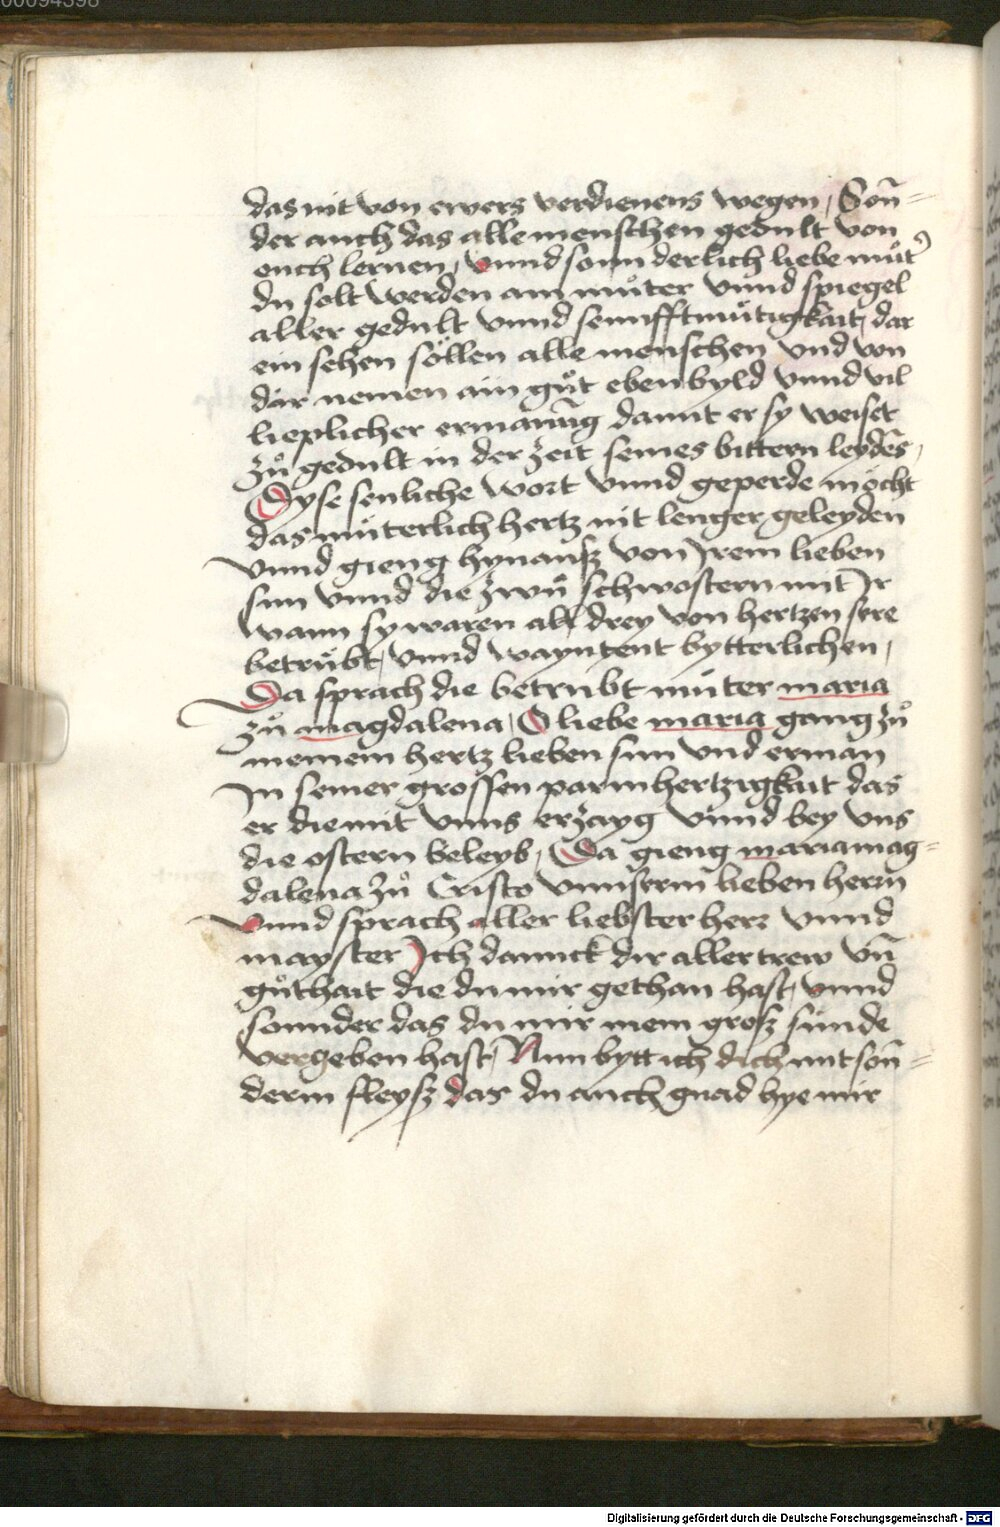 00094398
das nit von ewers verdienens wegen, Son̄=
der auch das alle menschen gedult von
euch lernen, vnnd sonnderlich liebe mut̊ᵓ
du solt werden ain můter vnnd spiegel
aller gedult vnnd sennfftmůtigkait, dar
ein sehen söllen alle menschen vnd von
dir nemen ain gůt ebenbyld vnnd vil
lieplicher ermanūg damit er sy weiset
zů gedult in der zeit seines bittern leydēs,
Dyse senliche wort vnnd geperde möcht
das můterlich hertz nit lenger geleyden
vnnd gieng hynausz von Jrem lieben
sun vnnd die zwů schwostern mit Jr
wann sy waren all drey von hertzen sere
betrůbt, vnnd wayntent bytterlichen,
Da sprach die betrubt můter maria
zů magdalena, O liebe maria gang zů
meinem hertz lieben sun vnd erman
Jn seiner grossen parmhertzigkait das
er die mit vnns erzayg vnnd bey vns
die ostern beleyb, Da gieng maria mag=
dalena zů Cristo vnnserm lieben herrn
vnnd sprach aller liebster herr vnnd
mayster Jch dannck dir aller trew vn̄
gůthait die du mir gethan hast, vnnd
sonnder das du mir mein grosz sünde
vergeben hast, Nun bytt ich dich mit son̄=
derm fleysz das du auch gnad hye mir
Digitalisierung gefördert durch die Deutsche Forschungsgemeinschaft - DFG